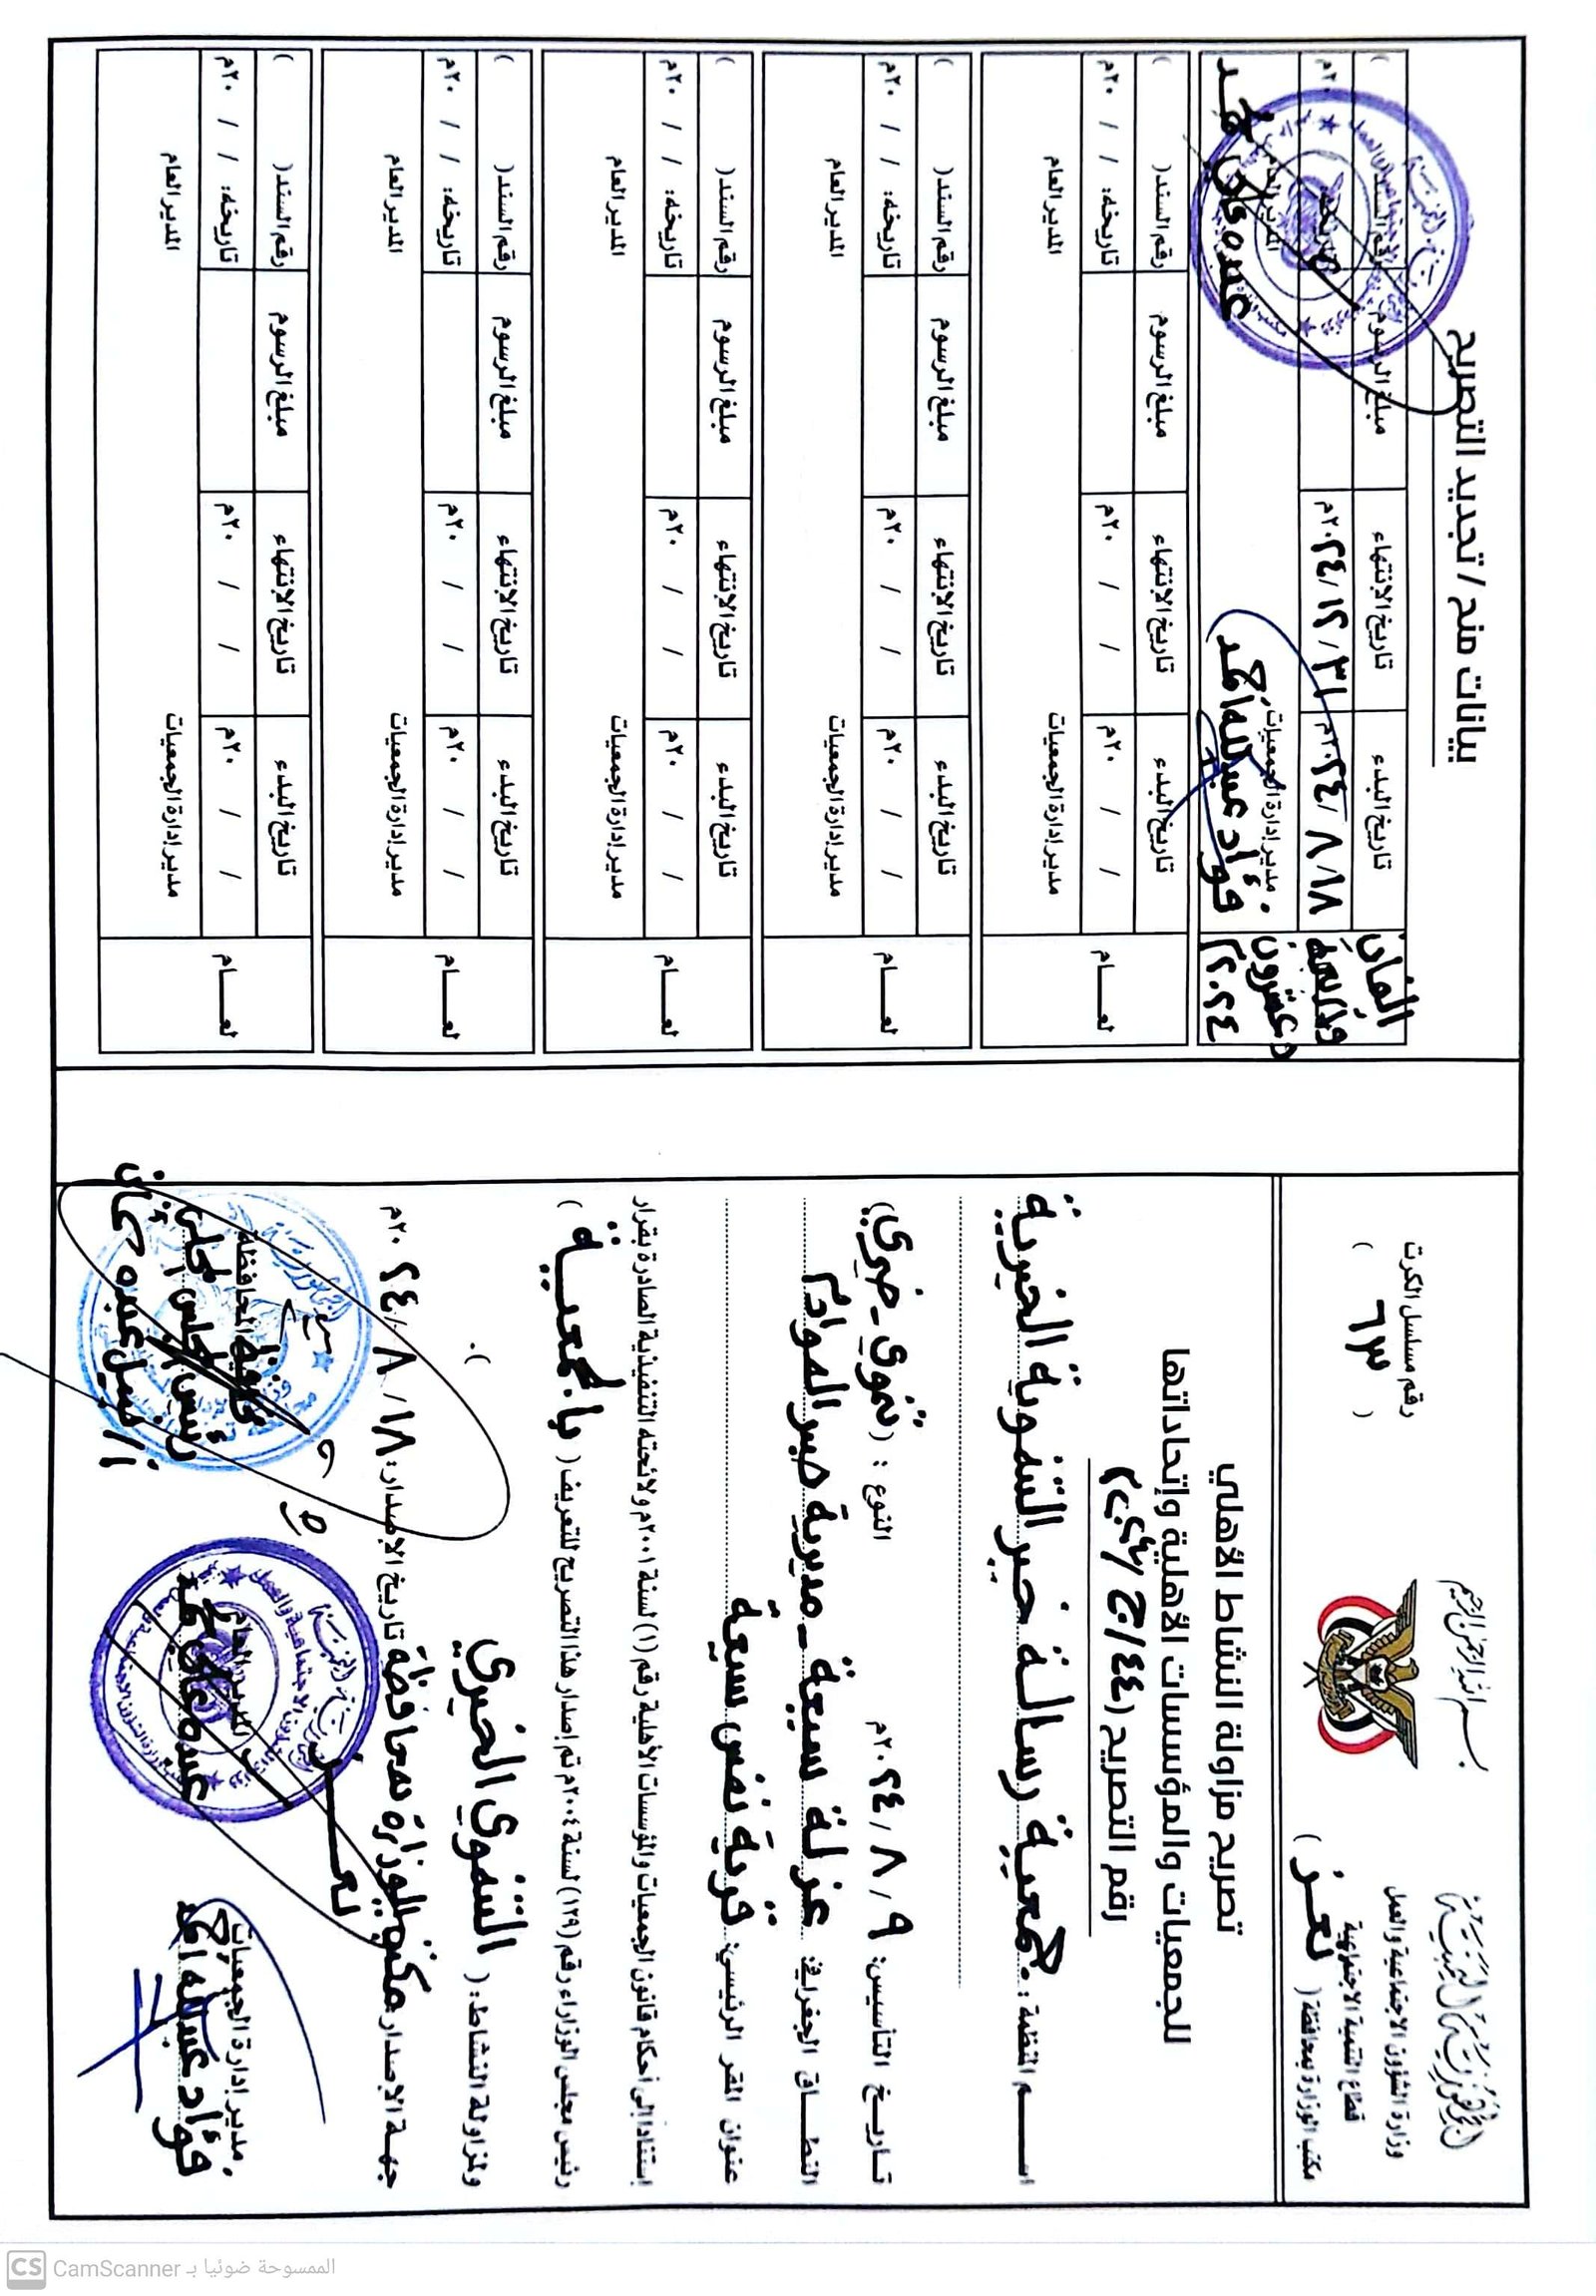 بسم الله الرحمن الرحيم
الجمهورية اليمنية
وزارة الشؤون الاجتماعية والعمل
قطاع التنمية الاجتماعية
مكتب الوزارة بمحافظة ( تعز )
رقم مسلسل الكرت
( ٦٣ )
تصريح مزاولة النشاط الأهلي
للجمعيات والمؤسسات الأهلية وإتحاداتها
رقم التصريح (
اســـم المنظمة : جمعية رسالة خير التنموية الخيرية
تـاريــخ التأسيس: ٩ / ٨ / ٢٠٢٤م النوع : (تنموي - خيري)
النطـــاق الجغرافي: عزلة سيعة - مديرية صبر الموادم
عنوان المقر الرئيسي: قرية نفس سيعة
استناداً إلى أحكام قانون الجمعيات والمؤسسات الأهلية رقم (١) لسنة ٢٠٠١م ولائحته التنفيذية الصادرة بقرار
رئيس مجلس الوزراء رقم (١٢٩) لسنة ٢٠٠٤م تم إصدار هذا التصريح للتعريف ( بالجمعيـــة )
ولمزاولة النشاط: ( التنموي الخيري ).
جهــة الإصدار: مكتب الوزارة بمحافظة تاريخ الإصدار: ١٨ / ٨ / ٢٠٢٤م
تعــز
مدير إدارة الجمعيات
فؤاد عبدالله أحمد
المدير العام
عبده علي محمد
محافظ المحافظة
رئيس المجلس المحلي
بيانات منح / تجديد التصريح
تاريخ البدء تاريخ الإنتهاء مبلغ الرسوم رقم السند( )
ألفان وأربعة وعشرون ٢٠٢٤م
١٨ / ٨ / ٢٠٢٤م ٣١ / ١٢ / ٢٠٢٤م تاريخه: ٢٠م
مدير إدارة الجمعيات المدير العام
فؤاد عبدالله أحمد عبده علي محمد
لعـــام تاريخ البدء تاريخ الإنتهاء مبلغ الرسوم رقم السند( )
/ / ٢٠م / / ٢٠م تاريخه: / / ٢٠م
مدير إدارة الجمعيات المدير العام
لعـــام تاريخ البدء تاريخ الإنتهاء مبلغ الرسوم رقم السند( )
/ / ٢٠م / / ٢٠م تاريخه: / / ٢٠م
مدير إدارة الجمعيات المدير العام
لعـــام تاريخ البدء تاريخ الإنتهاء مبلغ الرسوم رقم السند( )
/ / ٢٠م / / ٢٠م تاريخه: / / ٢٠م
مدير إدارة الجمعيات المدير العام
لعـــام تاريخ البدء تاريخ الإنتهاء مبلغ الرسوم رقم السند( )
/ / ٢٠م / / ٢٠م تاريخه: / / ٢٠م
مدير إدارة الجمعيات المدير العام
لعـــام تاريخ البدء تاريخ الإنتهاء مبلغ الرسوم رقم السند( )
/ / ٢٠م / / ٢٠م تاريخه: / / ٢٠م
مدير إدارة الجمعيات المدير العام
CS CamScanner الممسوحة ضوئيا بـ